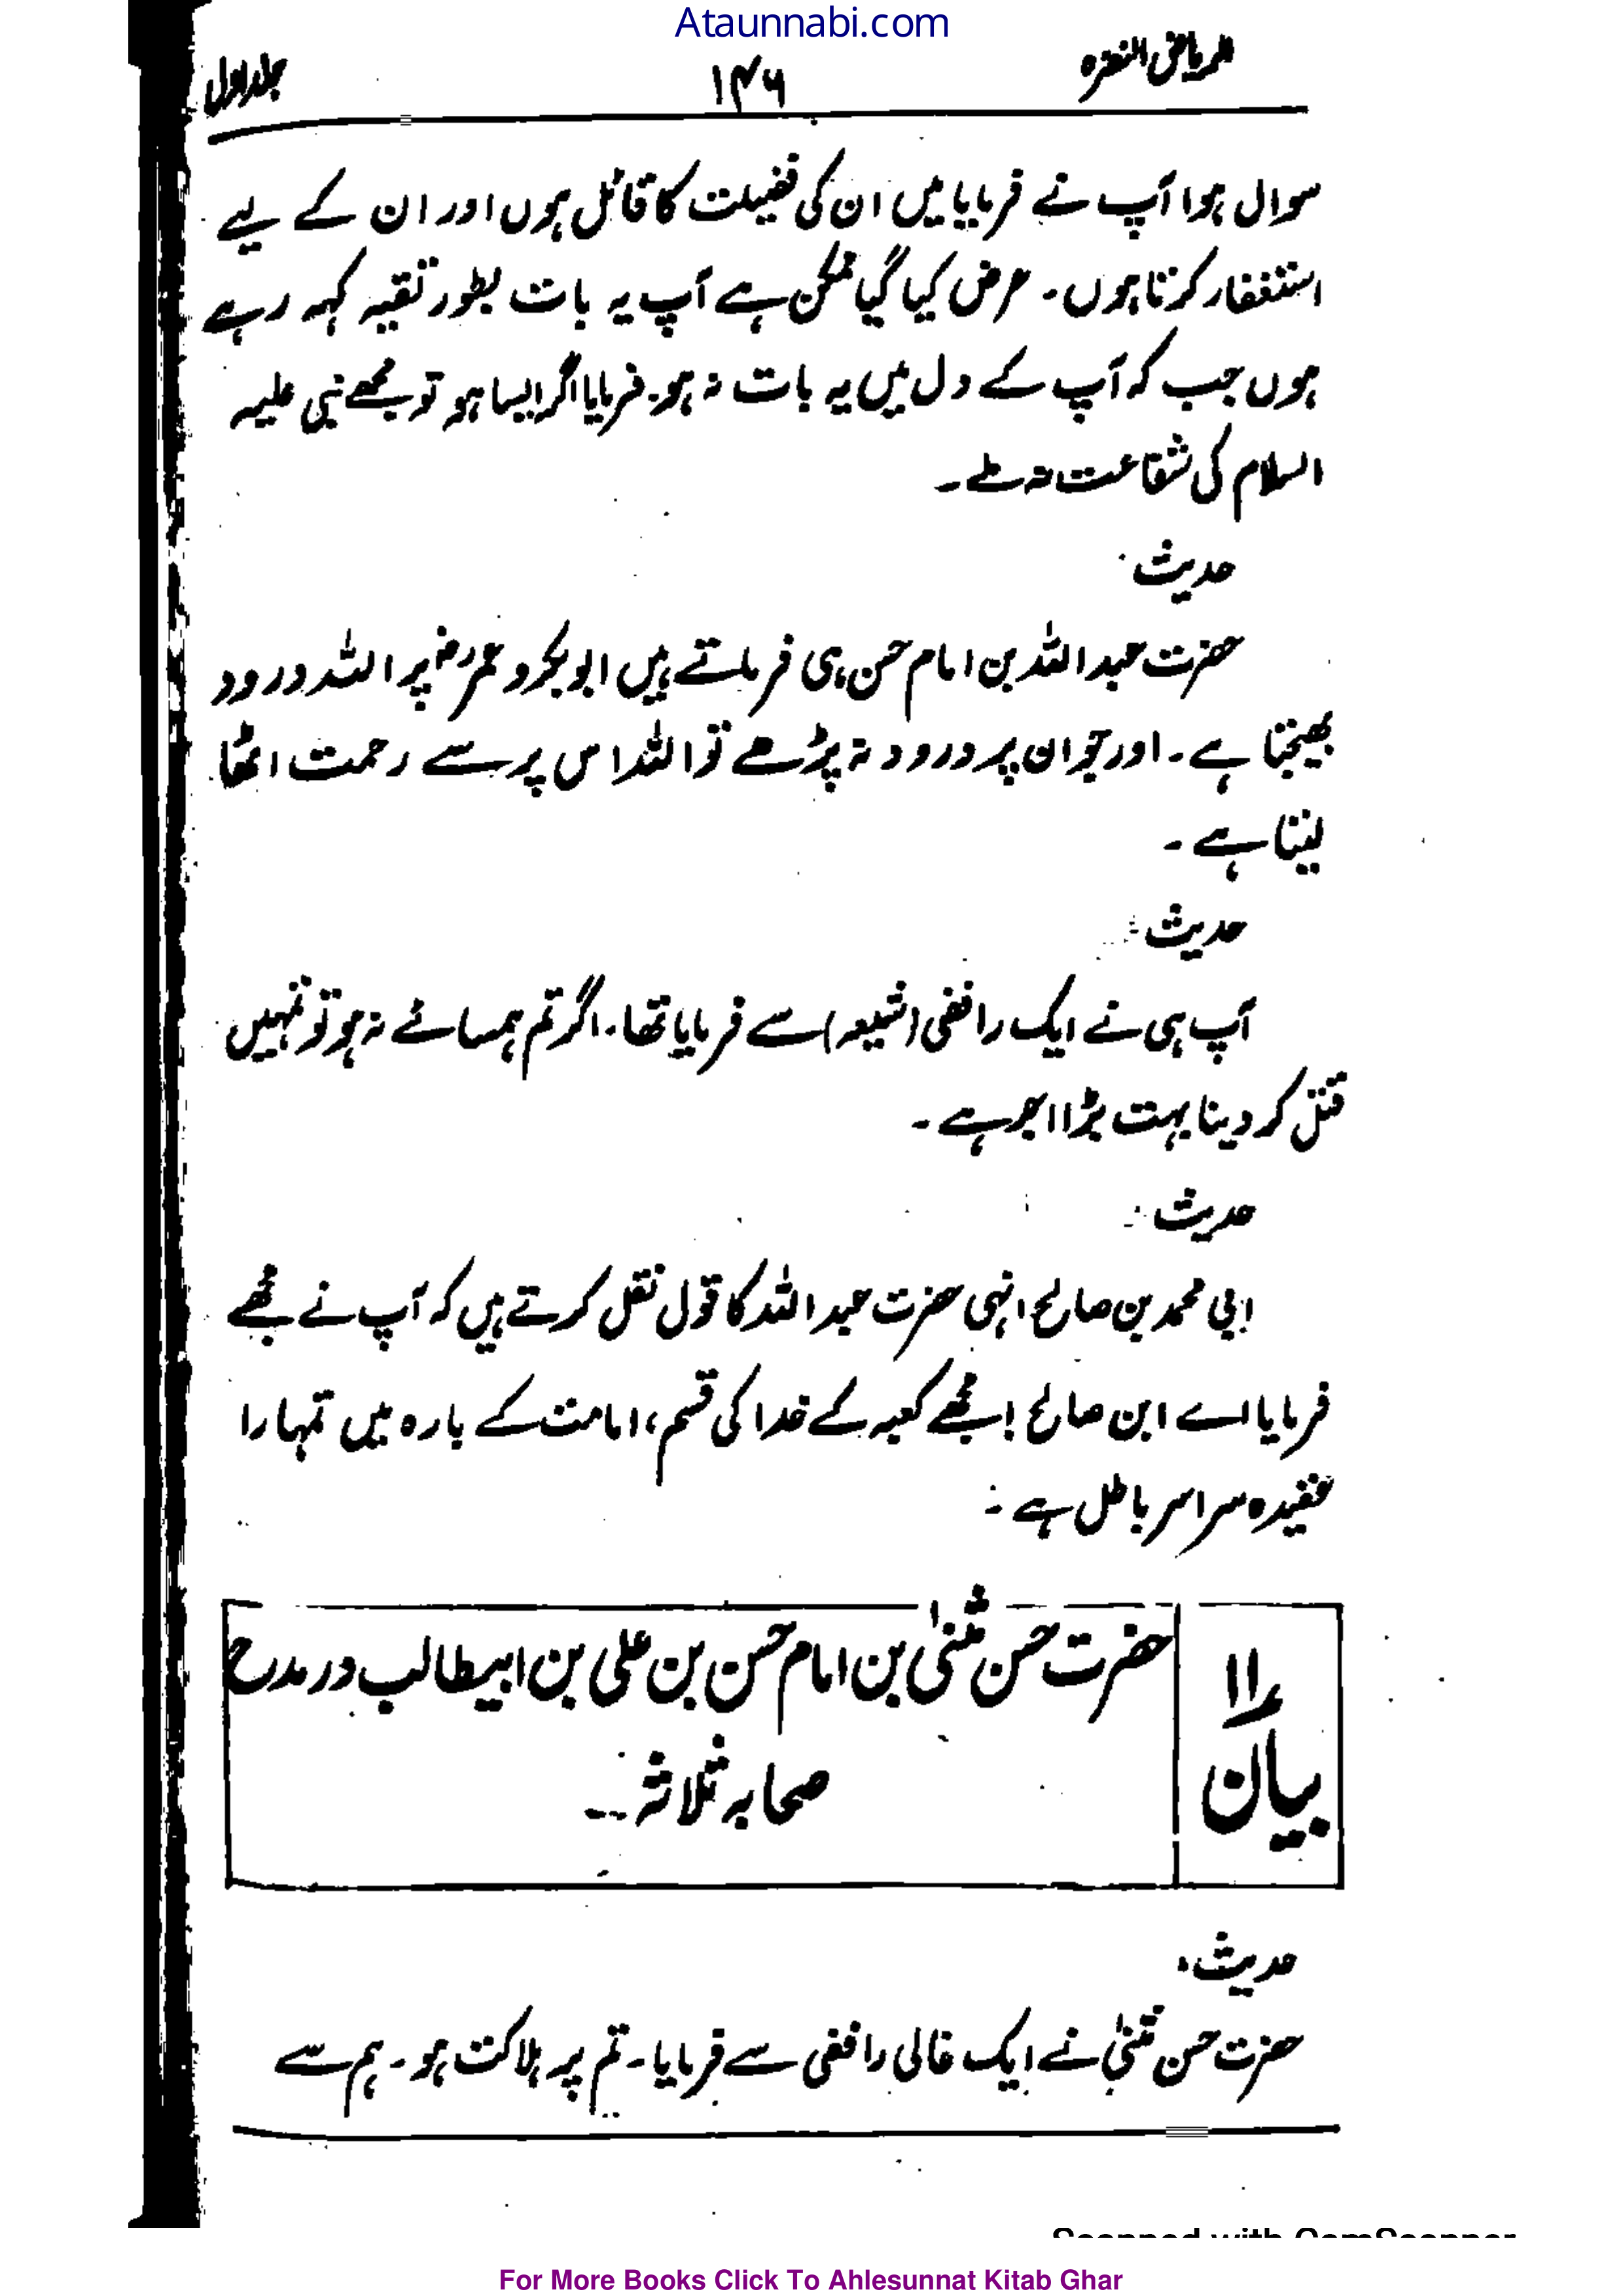 Ataunnabi.com
الریاض النضرہ ۱۴۶ جلد اول
سوال ہوا آپ نے فرمایا میں ان کی فضیلت کا قائل ہوں اور ان کے لیے
استغفار کرتا ہوں۔ عرض کیا گیا ممکن ہے آپ یہ بات بطور تقیہ کہہ رہے
ہوں جب کہ آپ کے دل میں یہ بات نہ ہو۔ فرمایا اگر ایسا ہو تو مجھے نبی علیہ
السلام کی شفاعت نہ ملے۔
حدیث
حضرت عبد اللہ بن امام حسن ہی فرماتے ہیں ابو بکر و عمر رض پر اللہ درود
بھیجتا ہے۔ اور جو ان پر درود نہ پڑھے تو اللہ اس پر سے رحمت اٹھا
لیتا ہے۔
حدیث
آپ ہی نے ایک رافضی (شیعہ) سے فرمایا تھا۔ اگر تم ہمسائے نہ ہو تو تمہیں
قتل کر دینا بہت بڑا اجر ہے۔
حدیث
ابی محمد بن صالح انہی حضرت عبد اللہ کا قول نقل کرتے ہیں کہ آپ نے مجھے
فرمایا اے ابن صالح! مجھے کعبہ کے خدا کی قسم، امامت کے بارہ میں تمہارا
عقیدہ سراسر باطل ہے۔
بیان ۱۱
حضرت حسن مثنیٰ بن امام حسن بن علی بن ابیطالب در مدح
صحابہ ثلاثہ۔۔
حدیث
حضرت حسن مثنیٰ نے ایک غالی رافضی سے فرمایا۔ تم پر ہلاکت ہو۔ ہم سے
Scanned with CamScanner
For More Books Click To Ahlesunnat Kitab Ghar